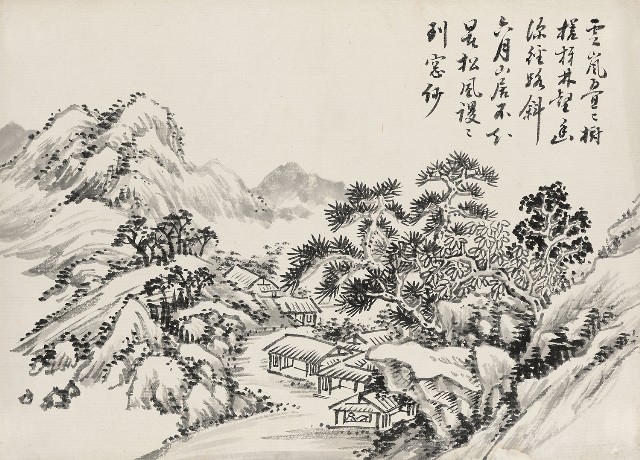 雲嵐疊〻樹
槎枒林壑幽
深徑路斜
六月山居不知
暑松風謖〻
到窓紗